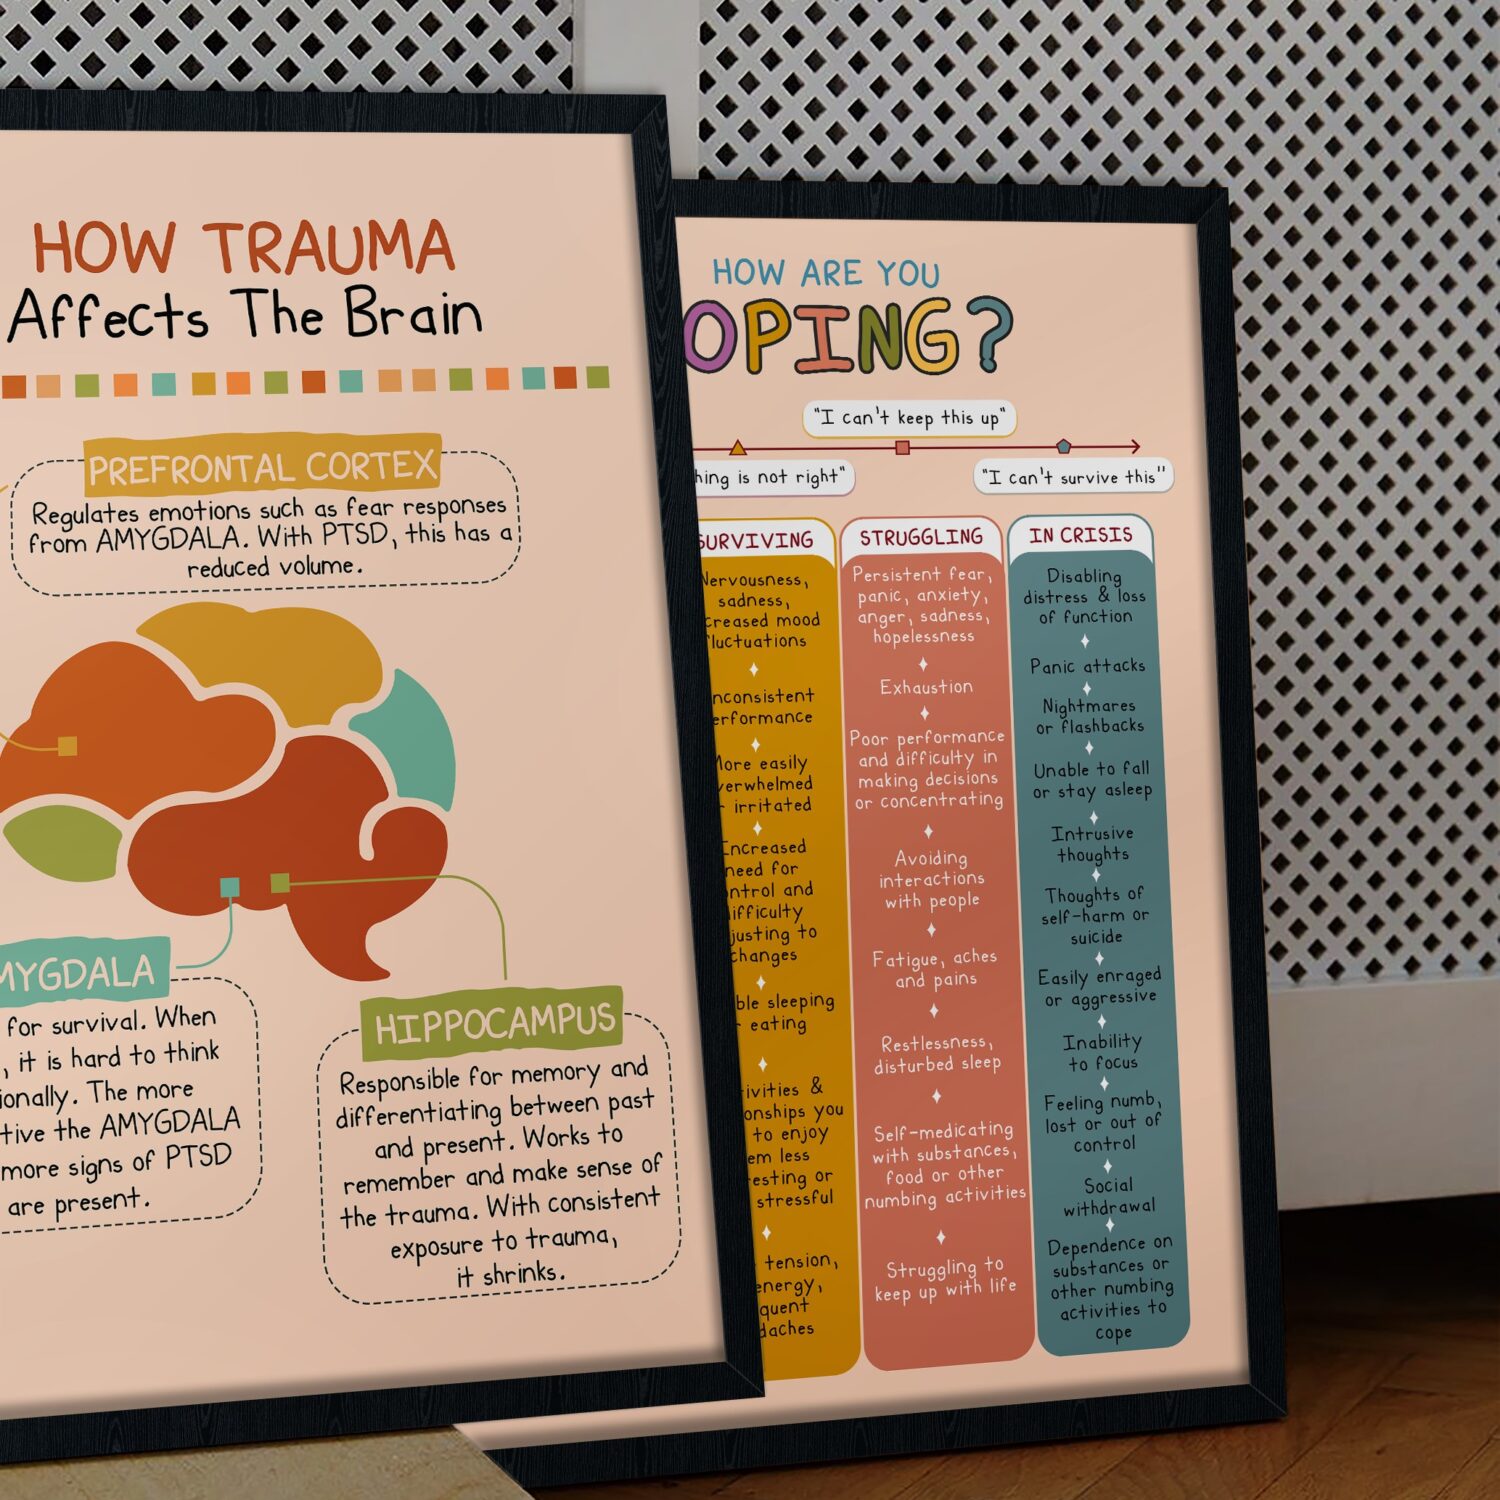 HOW TRAUMA
Affects The Brain
PREFRONTAL CORTEX
Regulates emotions such as fear responses
from AMYGDALA. With PTSD, this has a
reduced volume.
for survival. When
, it is hard to think
The more
the AMYGDALA
more signs of PTSD
are present.
HIPPOCAMPUS
Responsible for memory and
differentiating between past
and present. Works to
remember and make sense of
the trauma. With consistent
exposure to trauma,
it shrinks.
HOW ARE YOU
"I can't keep this up"
is not right"
"I can't survive this"
SURVIVING
Nervousness,
sadness,
mood
fluctuations
More easily
irritated
Increased
need for
and
to
changes
sleeping
eating
&
you
to enjoy
less
or
stressful
tension,
energy,
STRUGGLING
Persistent fear,
panic, anxiety,
anger, sadness,
hopelessness
Exhaustion
Poor performance
and difficulty in
making decisions
or concentrating
Avoiding
interactions
with people
Fatigue, aches
and pains
Restlessness,
disturbed sleep
Self-medicating
with substances,
food or other
numbing activities
Struggling to
keep up with life
IN CRISIS
Disabling
distress & loss
of function
Panic attacks
Nightmares
or flashbacks
Unable to fall
or stay asleep
Intrusive
thoughts
Thoughts of
self-harm or
suicide
Easily enraged
or aggressive
Inability
to focus
Feeling numb,
lost or out of
control
Social
withdrawal
Dependence on
substances or
other numbing
activities to
cope